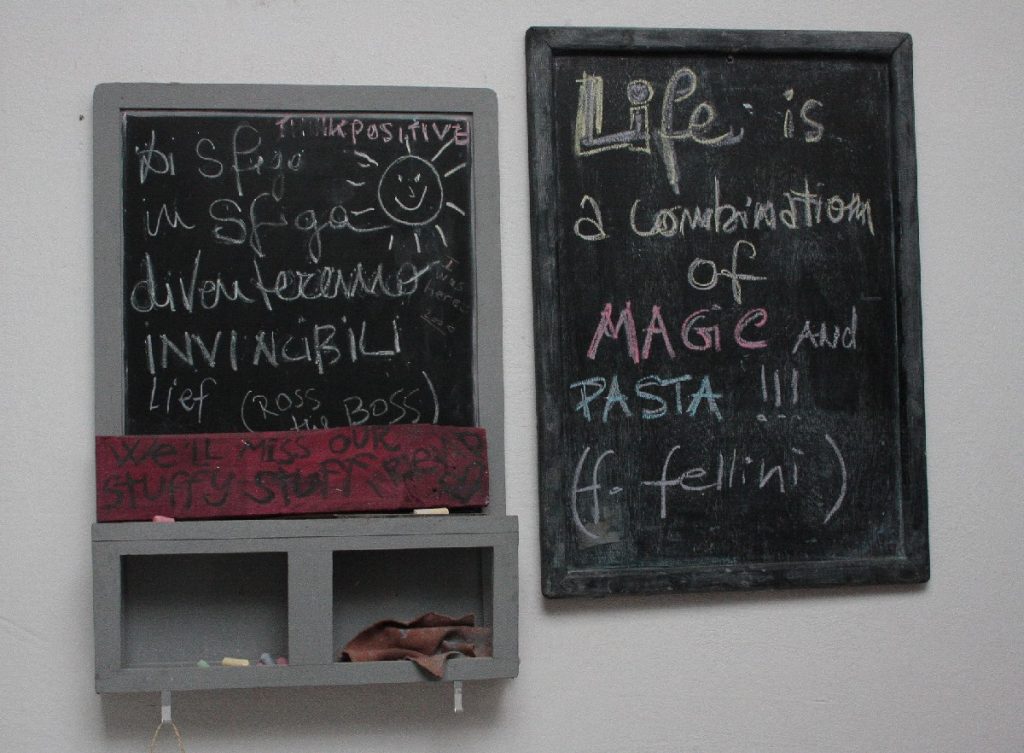 THINK POSITIVE
Di Sfiga
in Sfiga
diventeremo
INVINCIBILI
Lief (ROSS
the BOSS)
I
was
here
WE'LL MISS OUR
STUFFY STUFF
Life is
a combination
of
MAGIC AND
PASTA !!!
(f. fellini)